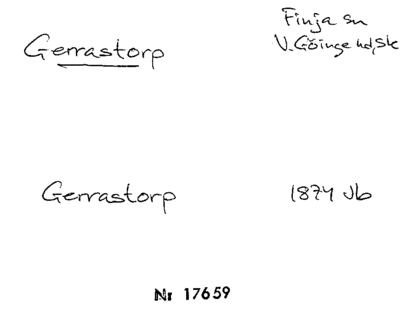 Gerrastorp
Finja sn
V. Göinge hd, Sk
Gerrastorp
1874 Jb
Nr 17659